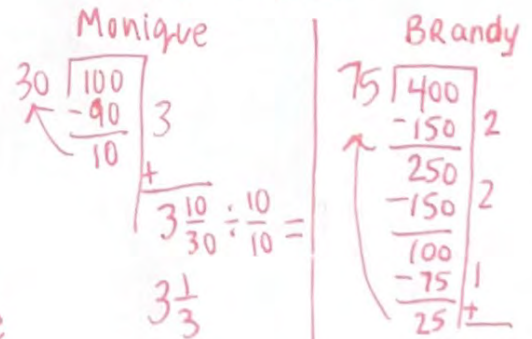 Monique
30 100
-90 3
10
+
3 10/30 ÷ 10/10 =
3 1/3
BRandy
75 400
-150 2
250
-150 2
100
-75 1
25 +